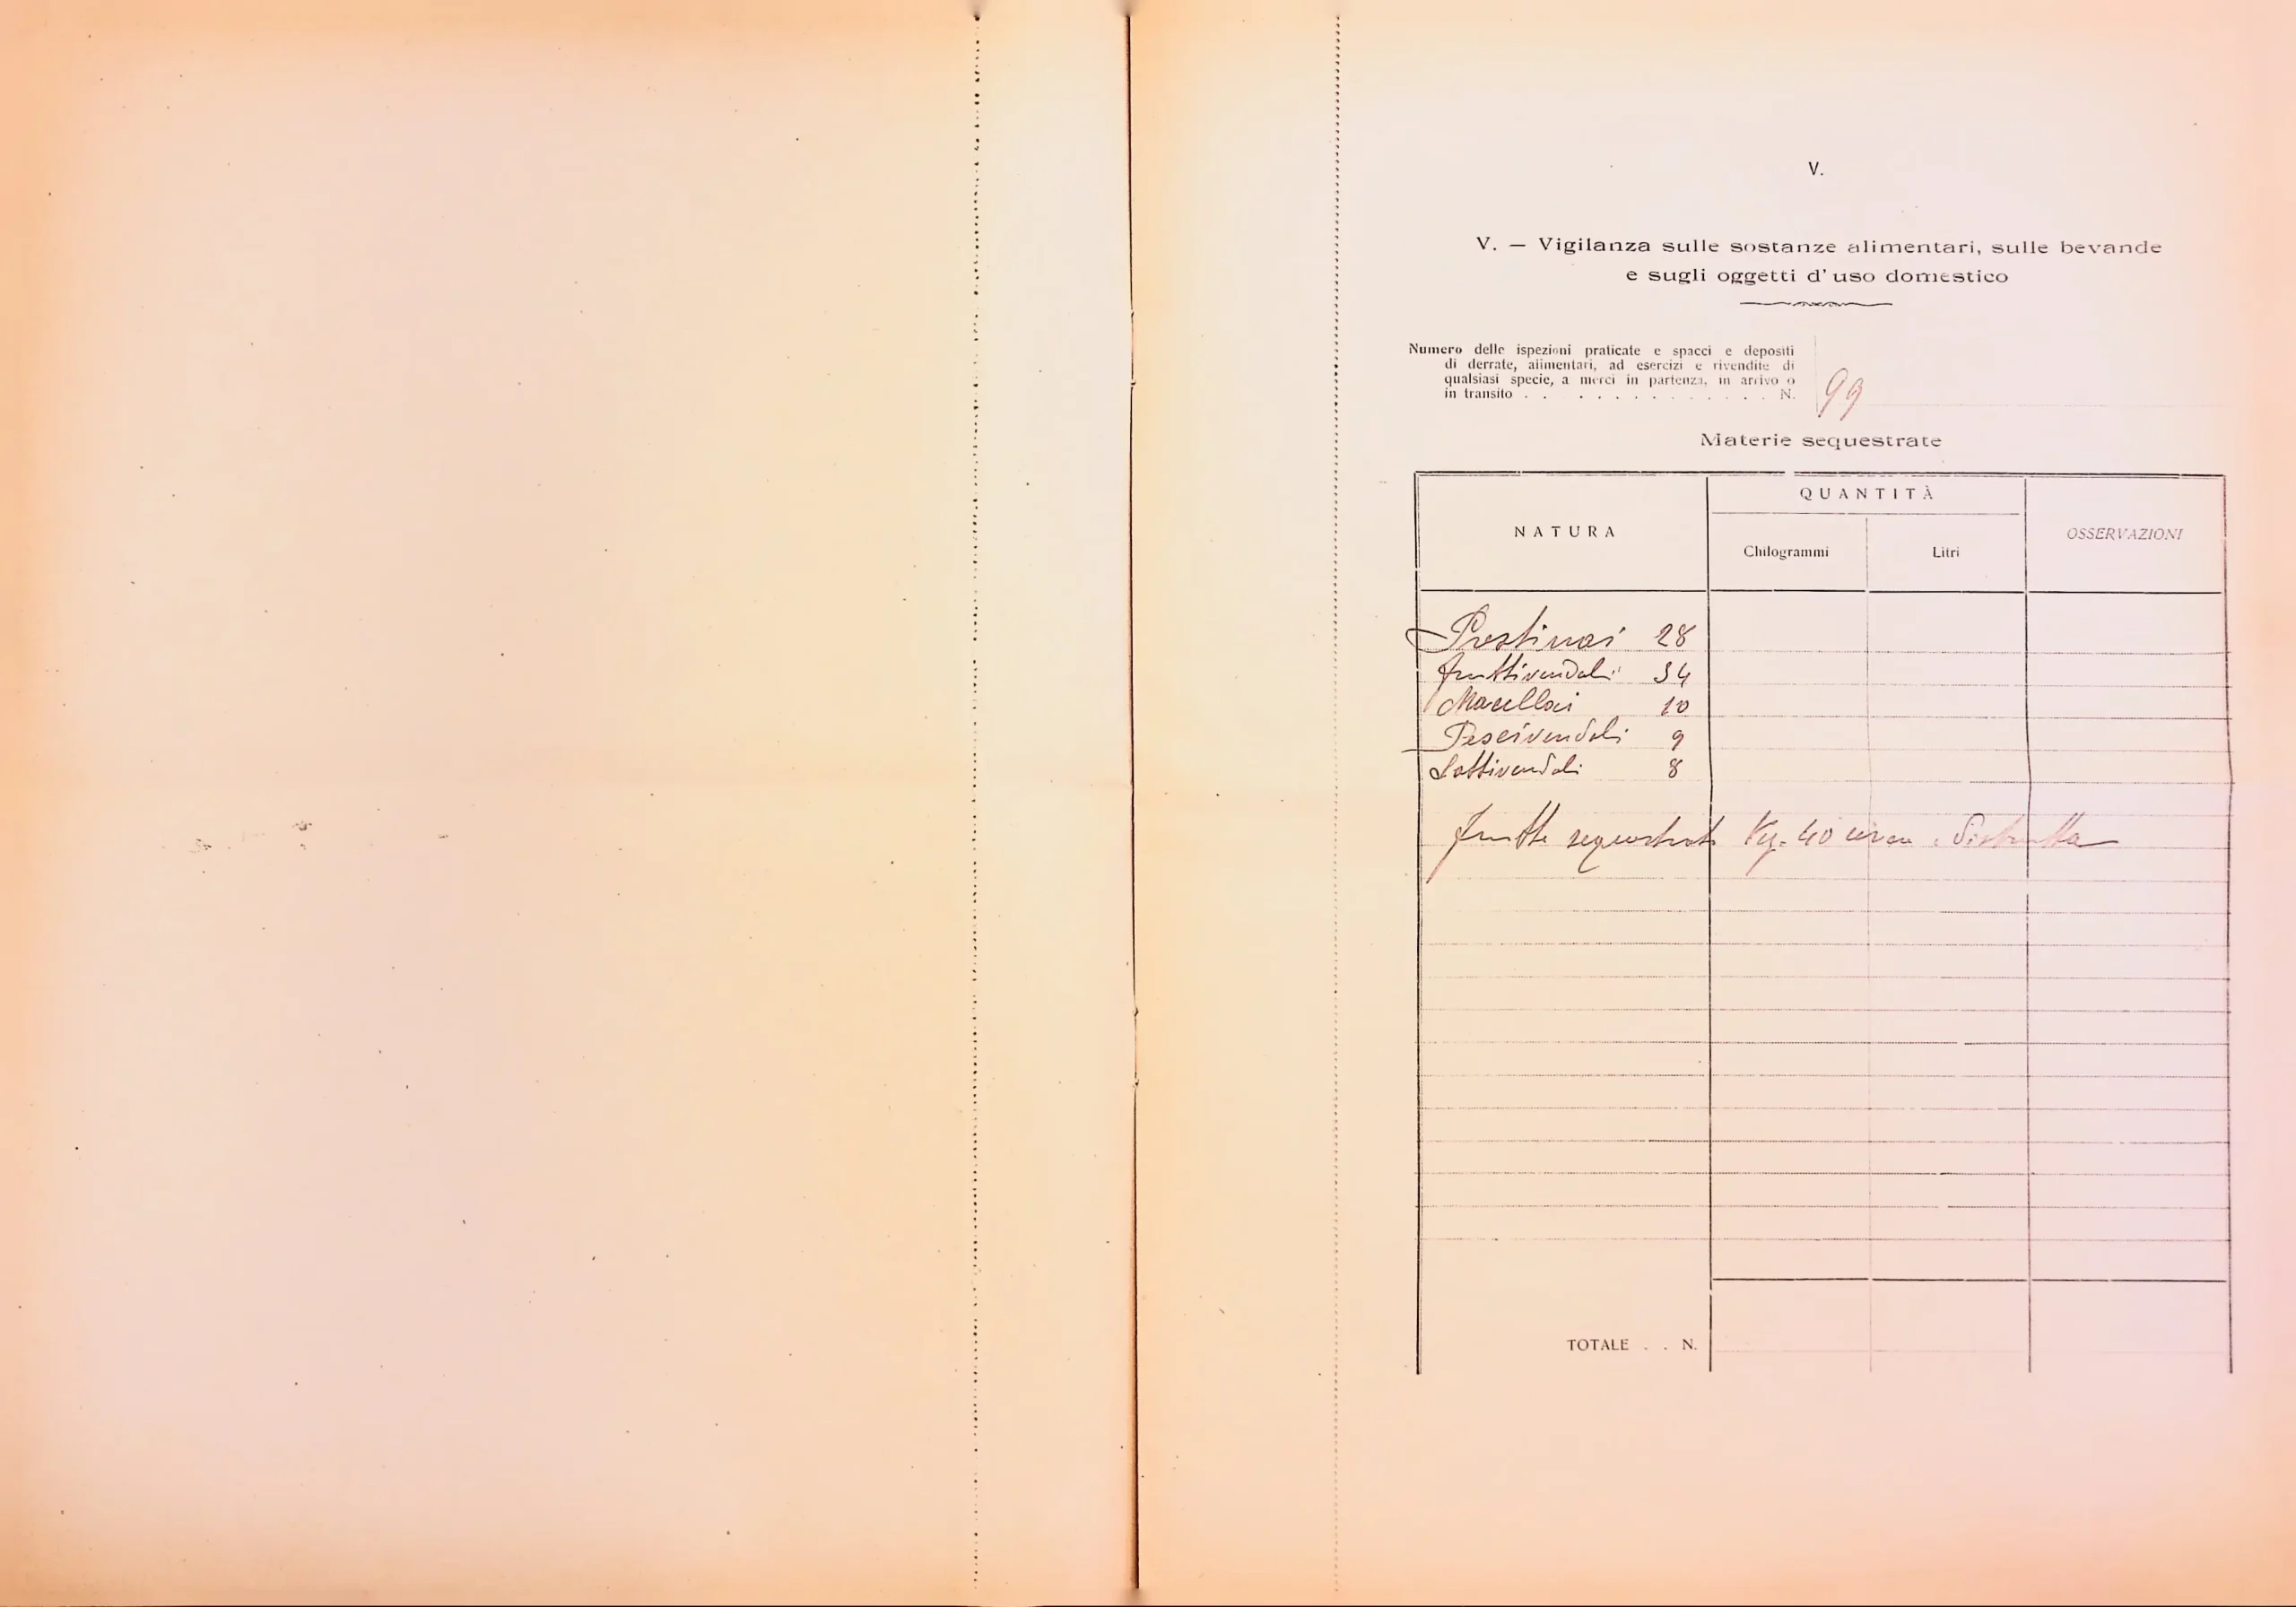 V.
V. — Vigilanza sulle sostanze alimentari, sulle bevande
e sugli oggetti d' uso domestico
Numero delle ispezioni praticate e spacci e depositi
di derrate, alimentari, ad esercizi e rivendite di
qualsiasi specie, a merci in partenza, in arrivo o
in transito . . . . . . . . . . . . . N. 99
Materie sequestrate
NATURA QUANTITÀ OSSERVAZIONI
Chilogrammi Litri
Prestinai 28
fruttivendoli 34
Macellai 10
Pescivendoli 9
Lattivendoli 8
frutta sequestrata Kg. 40 circa. Distrutta
TOTALE . . N.